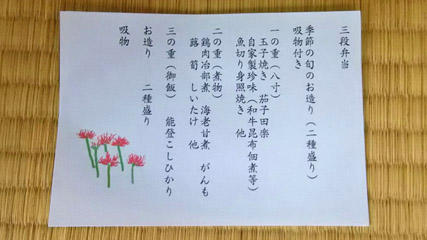 三段弁当
季節の旬のお造り(二種盛り)
吸物付き
一の重(八寸)
玉子焼き 茄子田楽
自家製珍味(和牛昆布佃煮等)
魚切り身照焼き 他
二の重(煮物)
鶏肉治部煮 海老甘煮 がんも
蕗 筍 しいたけ 他
三の重(御飯) 能登こしひかり
お造り 二種盛り
吸物